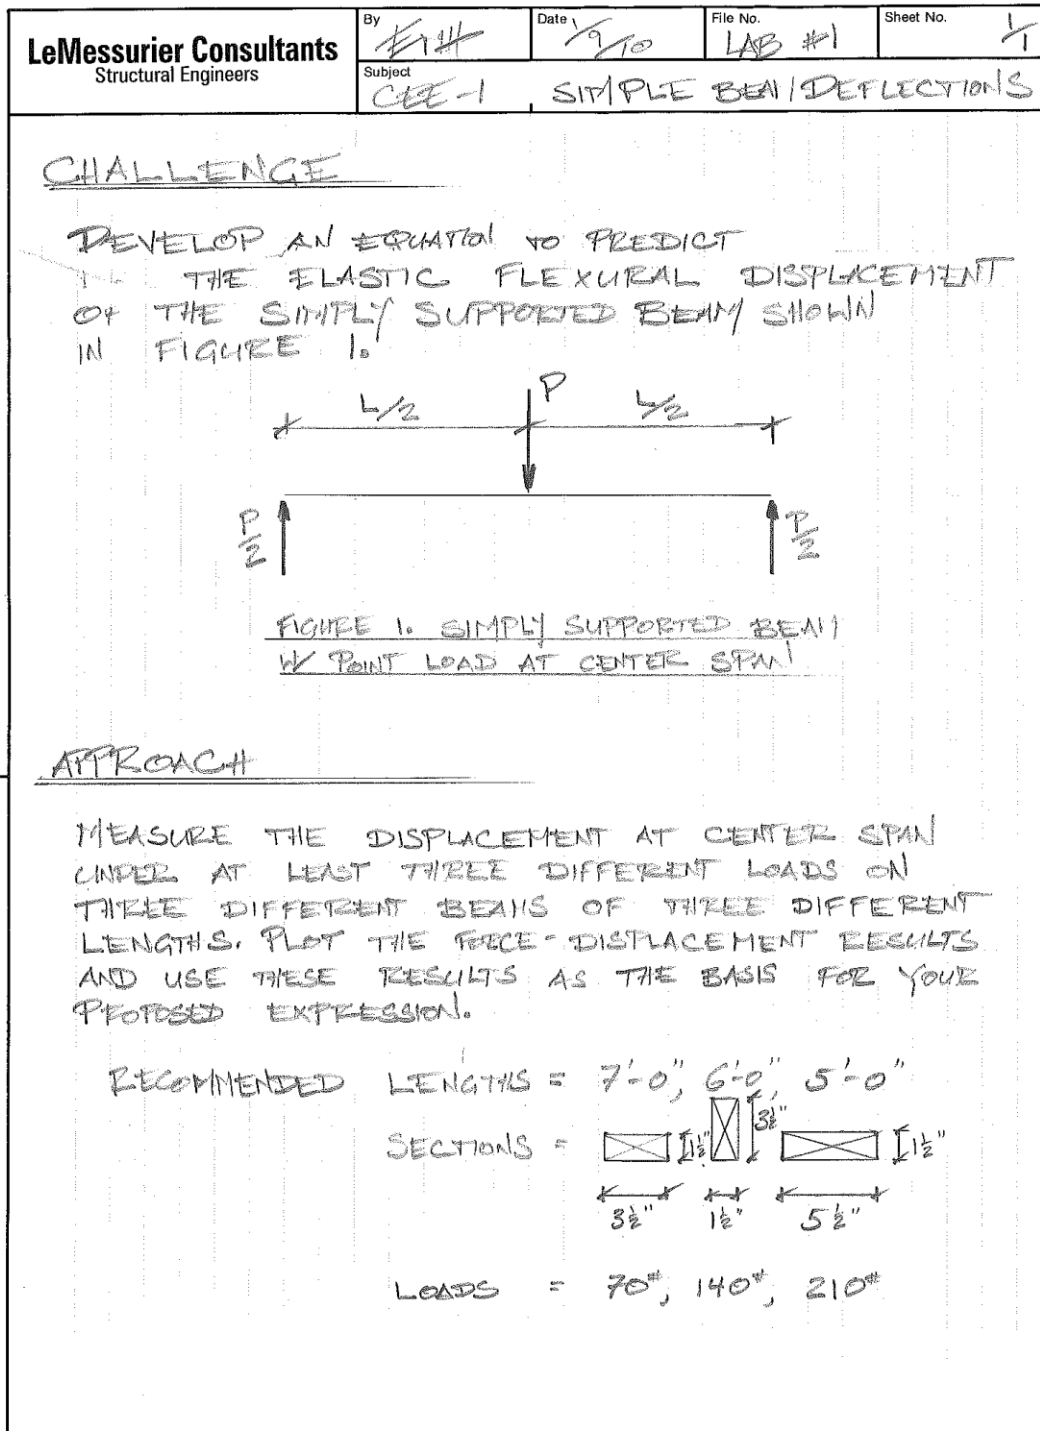 LeMessurier Consultants
Structural Engineers
By
Date 1/9/10
File No. LAB #1
Sheet No. 1/1
Subject
CEE-1 SIMPLE BEAM DEFLECTIONS
CHALLENGE
DEVELOP AN EQUATION TO PREDICT
THE ELASTIC FLEXURAL DISPLACEMENT
OF THE SIMPLY SUPPORTED BEAM SHOWN
IN FIGURE 1.
L/2 P L/2
P/2 P/2
FIGURE 1. SIMPLY SUPPORTED BEAM
W/ POINT LOAD AT CENTER SPAN
APPROACH
MEASURE THE DISPLACEMENT AT CENTER SPAN
UNDER AT LEAST THREE DIFFERENT LOADS ON
THREE DIFFERENT BEAMS OF THREE DIFFERENT
LENGTHS. PLOT THE FORCE-DISPLACEMENT RESULTS
AND USE THESE RESULTS AS THE BASIS FOR YOUR
PROPOSED EXPRESSION.
RECOMMENDED LENGTHS = 7'-0", 6'-0", 5'-0"
SECTIONS = 1½" 3½" 1½"
3½" 1½" 5½"
LOADS = 70#, 140#, 210#